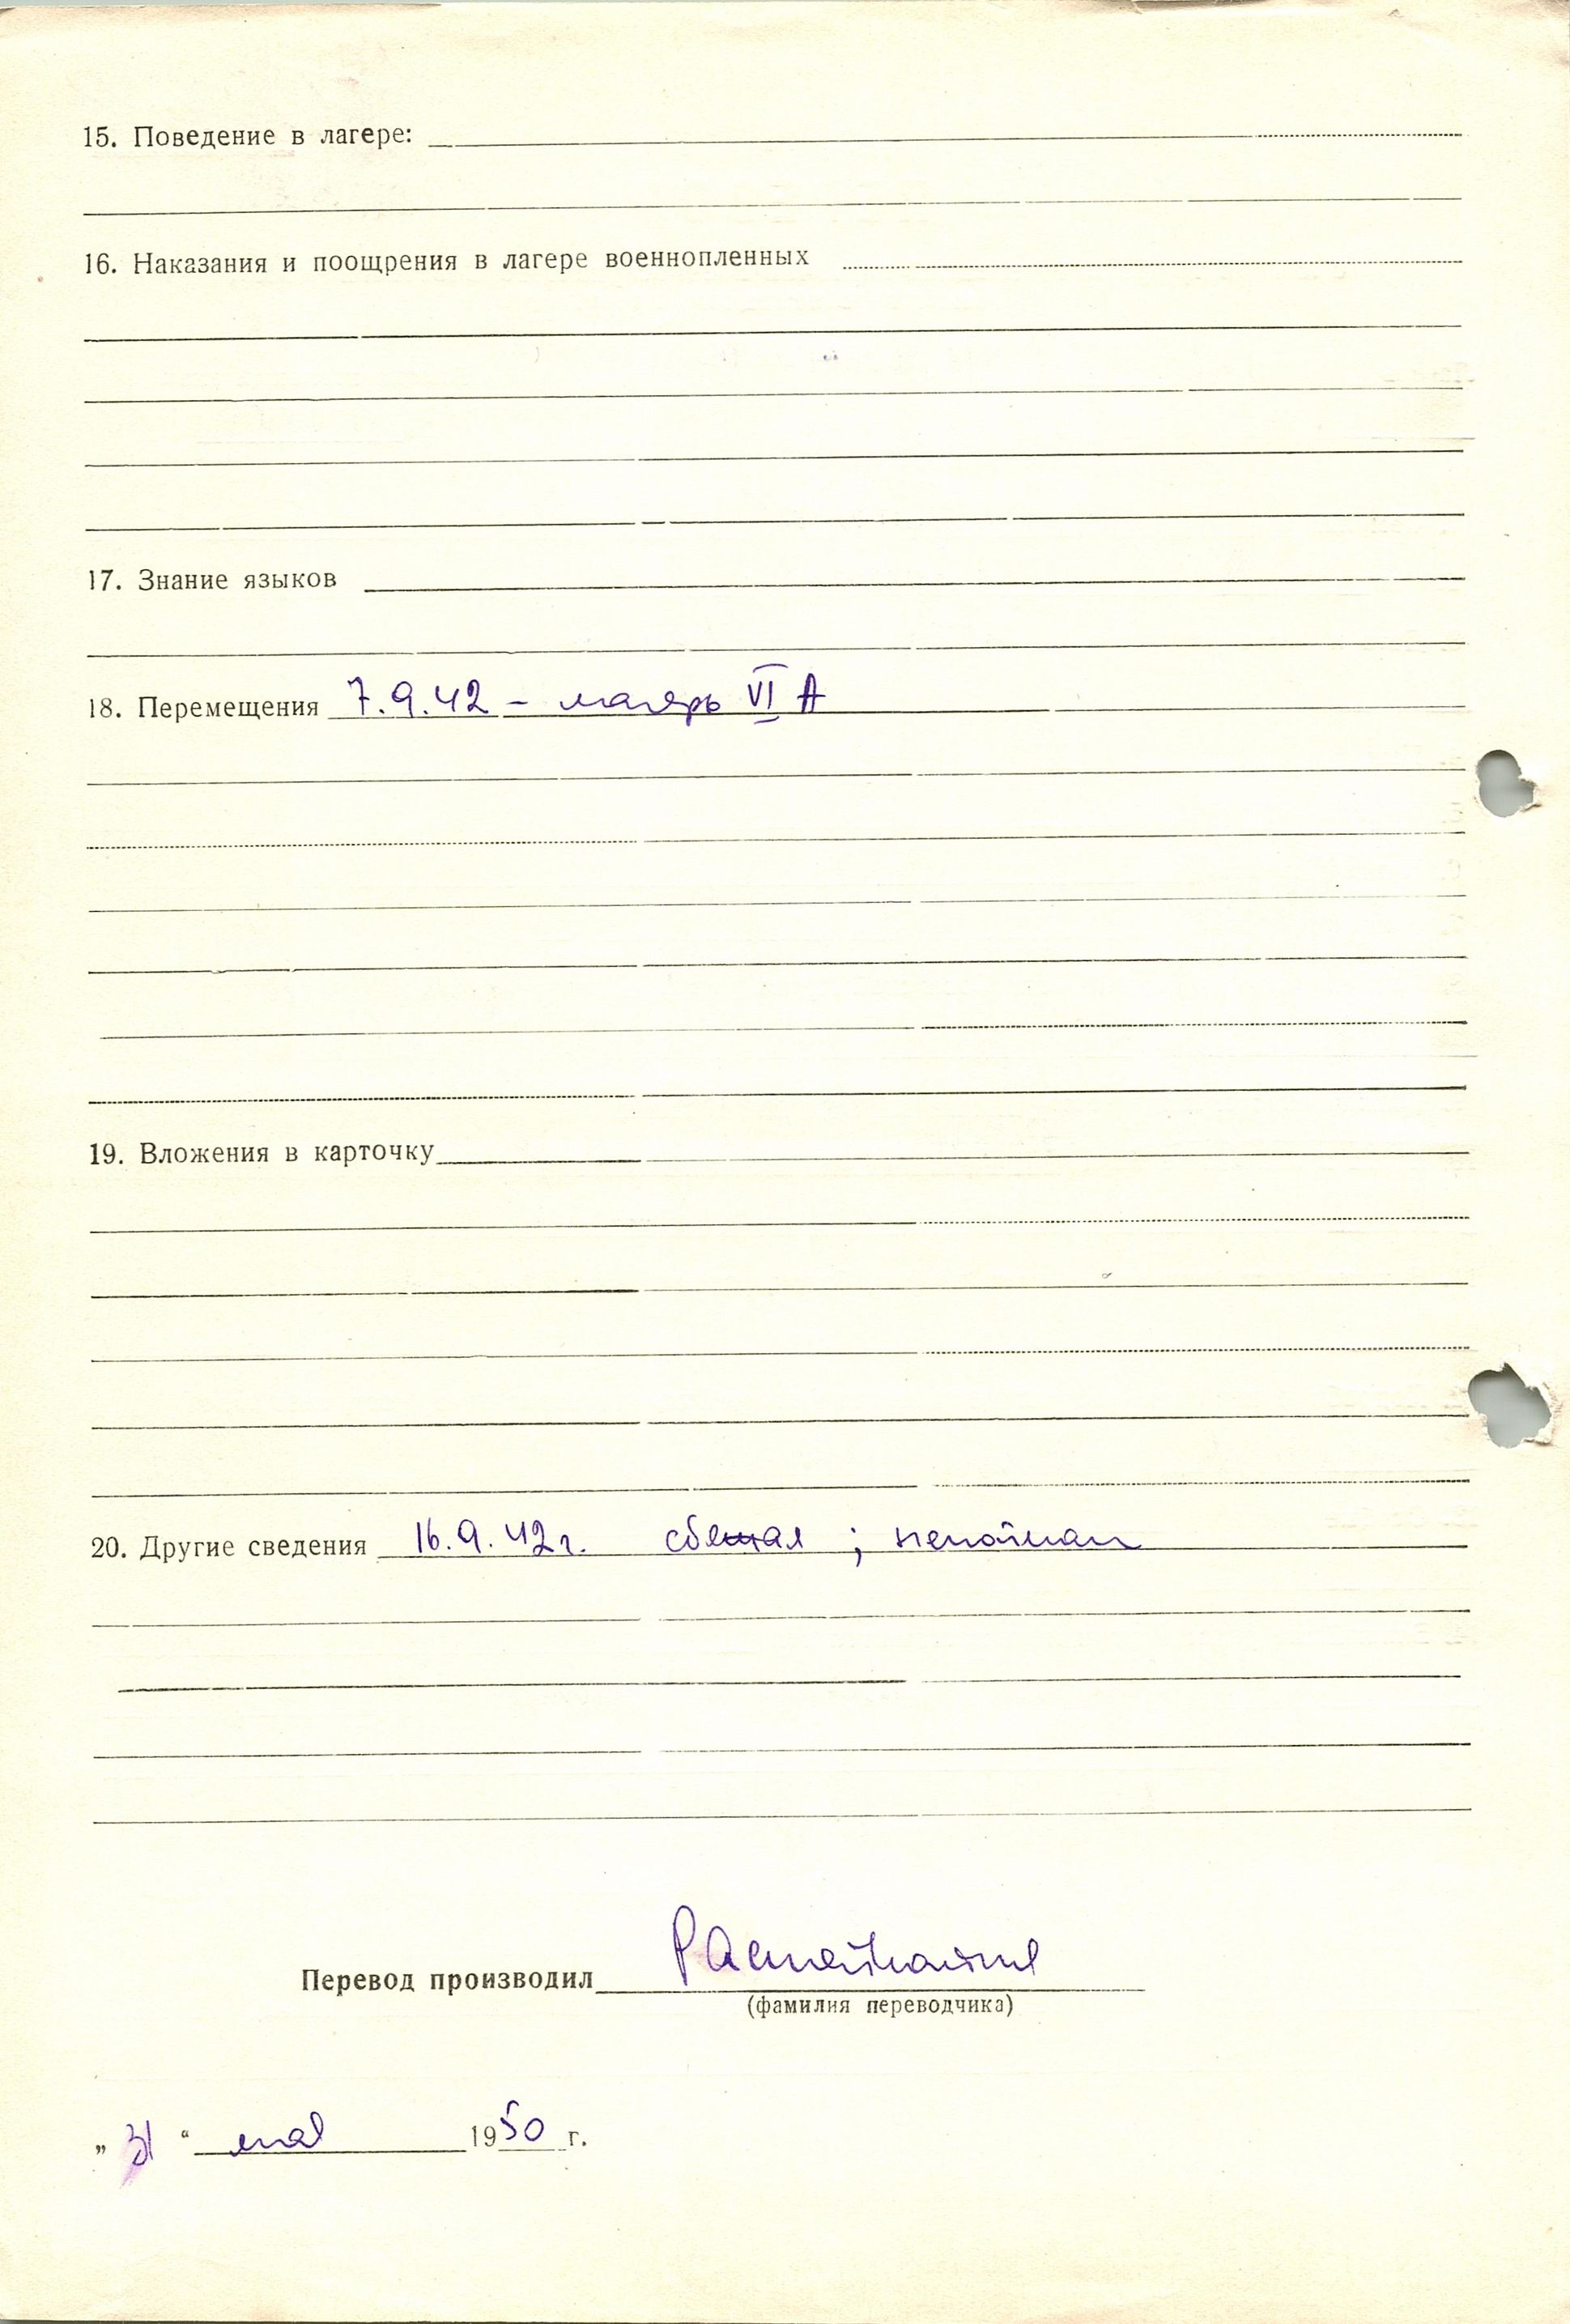 15. Поведение в лагере:
16. Наказания и поощрения в лагере военнопленных
17. Знание языков
18. Перемещения 7.9.42 – лагерь VI A
19. Вложения в карточку
20. Другие сведения 16.9.42 г. сбежал ; непойман
Перевод производил
(фамилия переводчика)
„ 31 “ мая 1950 г.